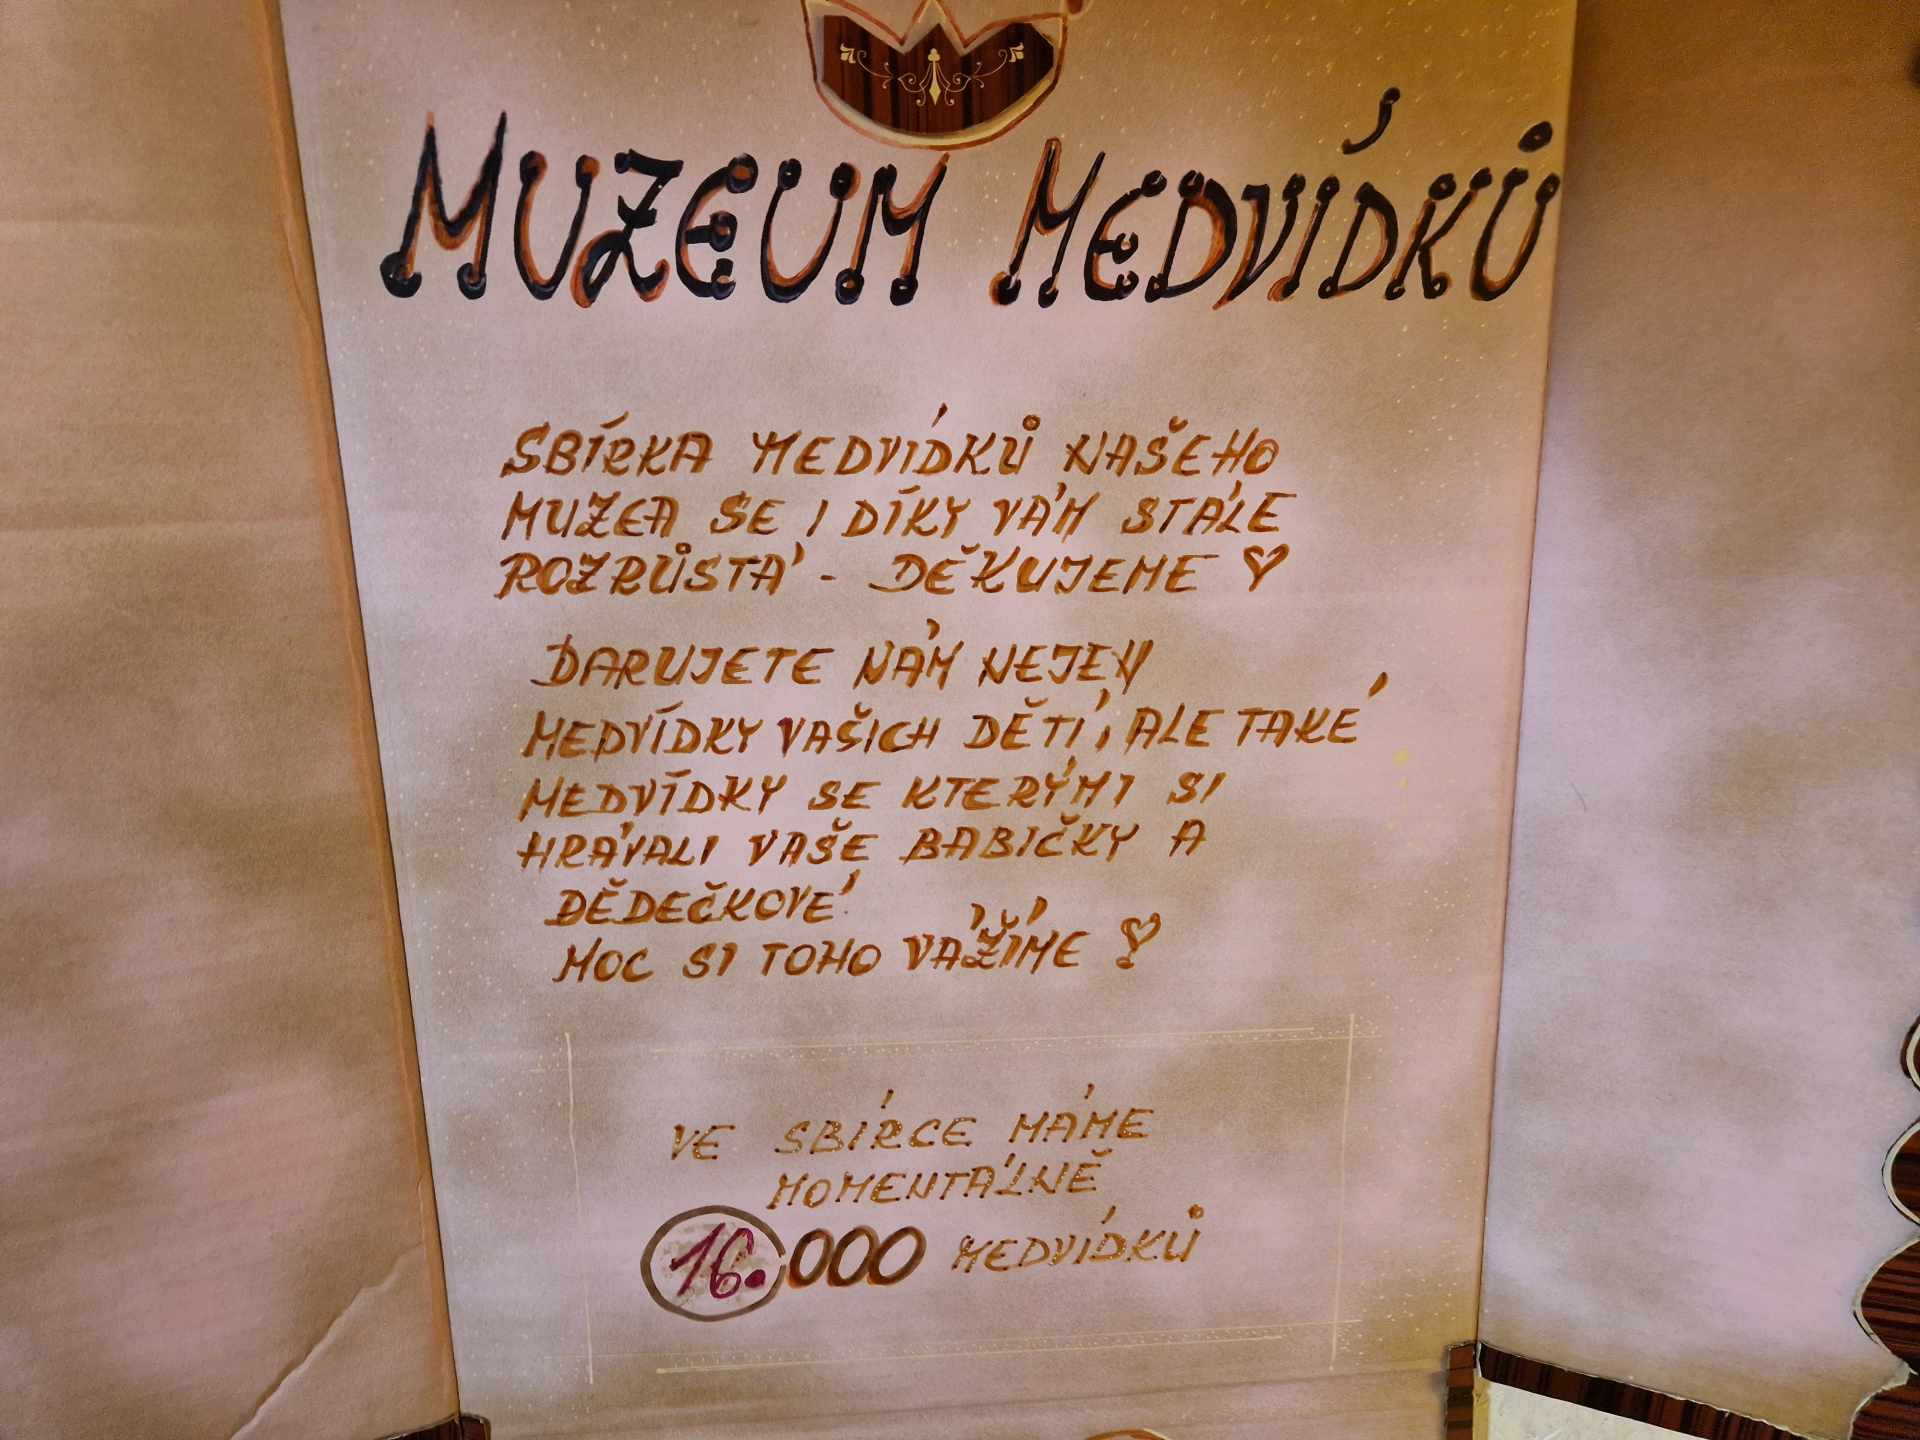 MUZEUM MEDVÍDKŮ
SBÍRKA MEDVÍDKŮ NAŠEHO
MUZEA SE I DÍKY VÁM STÁLE
ROZRŮSTÁ - DĚKUJEME ♡
DARUJETE NÁM NEJEN
MEDVÍDKY VAŠICH DĚTÍ, ALE TAKÉ
MEDVÍDKY SE KTERÝMI SI
HRÁVALI VAŠE BABIČKY A
DĚDEČKOVÉ.
MOC SI TOHO VÁŽÍME ♡
VE SBÍRCE MÁME
MOMENTÁLNĚ
16.000 MEDVÍDKŮ